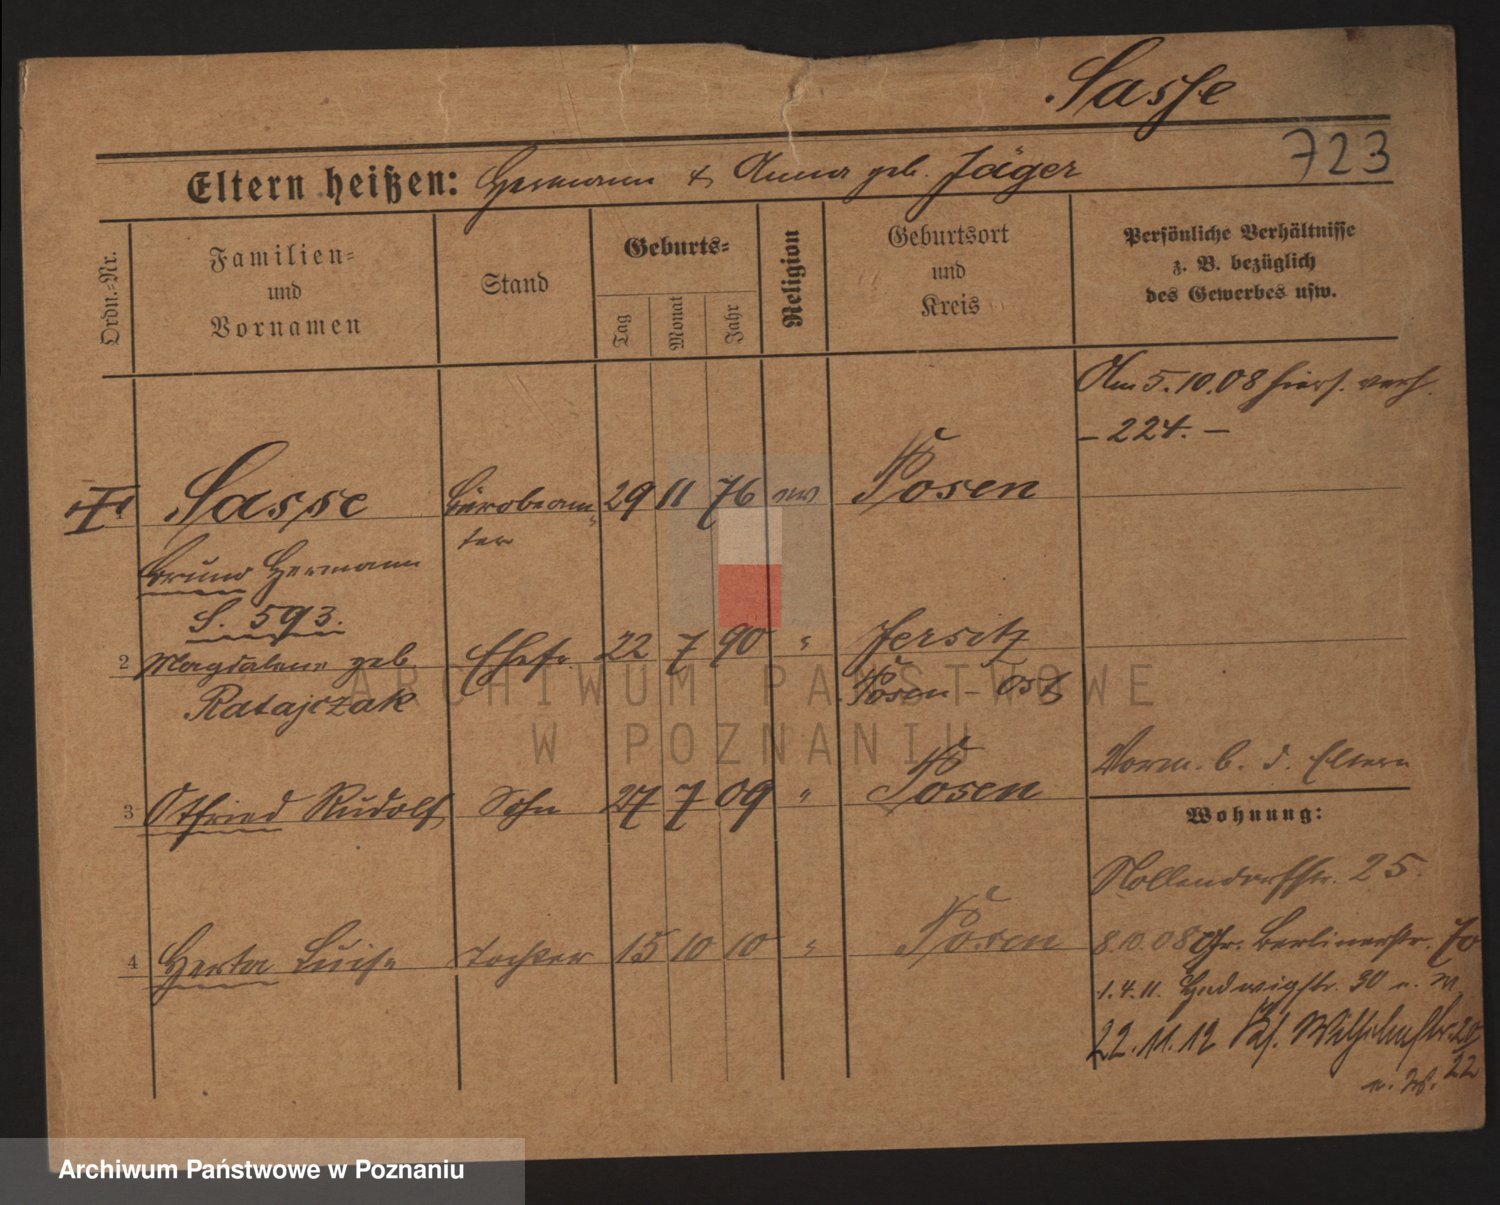 Sasse
723
Eltern heißen: Hermann & Anna geb. Jäger
Ordn.-Nr.
Familien-
und
Vornamen
Stand
Geburts-
Tag
Monat
Jahr
Religion
Geburtsort
und
Kreis
Persönliche Verhältnisse
z. B. bezüglich
des Gewerbes usw.
Am 5.10.08 hiers. verh.
- 224. -
Sasse Bürobeam- 29 11 76 ev Posen
ter
Bruno Hermann
S. 593.
2 Magdalena geb. Ehefr. 22 7 90 " Jersitz
Ratajczak Posen - Ost
Vorm. b. d. Eltern
3 Otfried Rudolf Sohn 27 7 09 " Posen
Wohnung:
Nollendorfstr. 25.
4 Herta Luise Tochter 15 10 10 " Posen
8.10.08 Gr. Berlinerstr. 70
1.4.11. Hedwigstr. 30 u. W
22.11.12 Ks. Wilhelmstr. 20
22
u. W.
ARCHIWUM PAŃSTWOWE
W POZNANIU
Archiwum Państwowe w Poznaniu